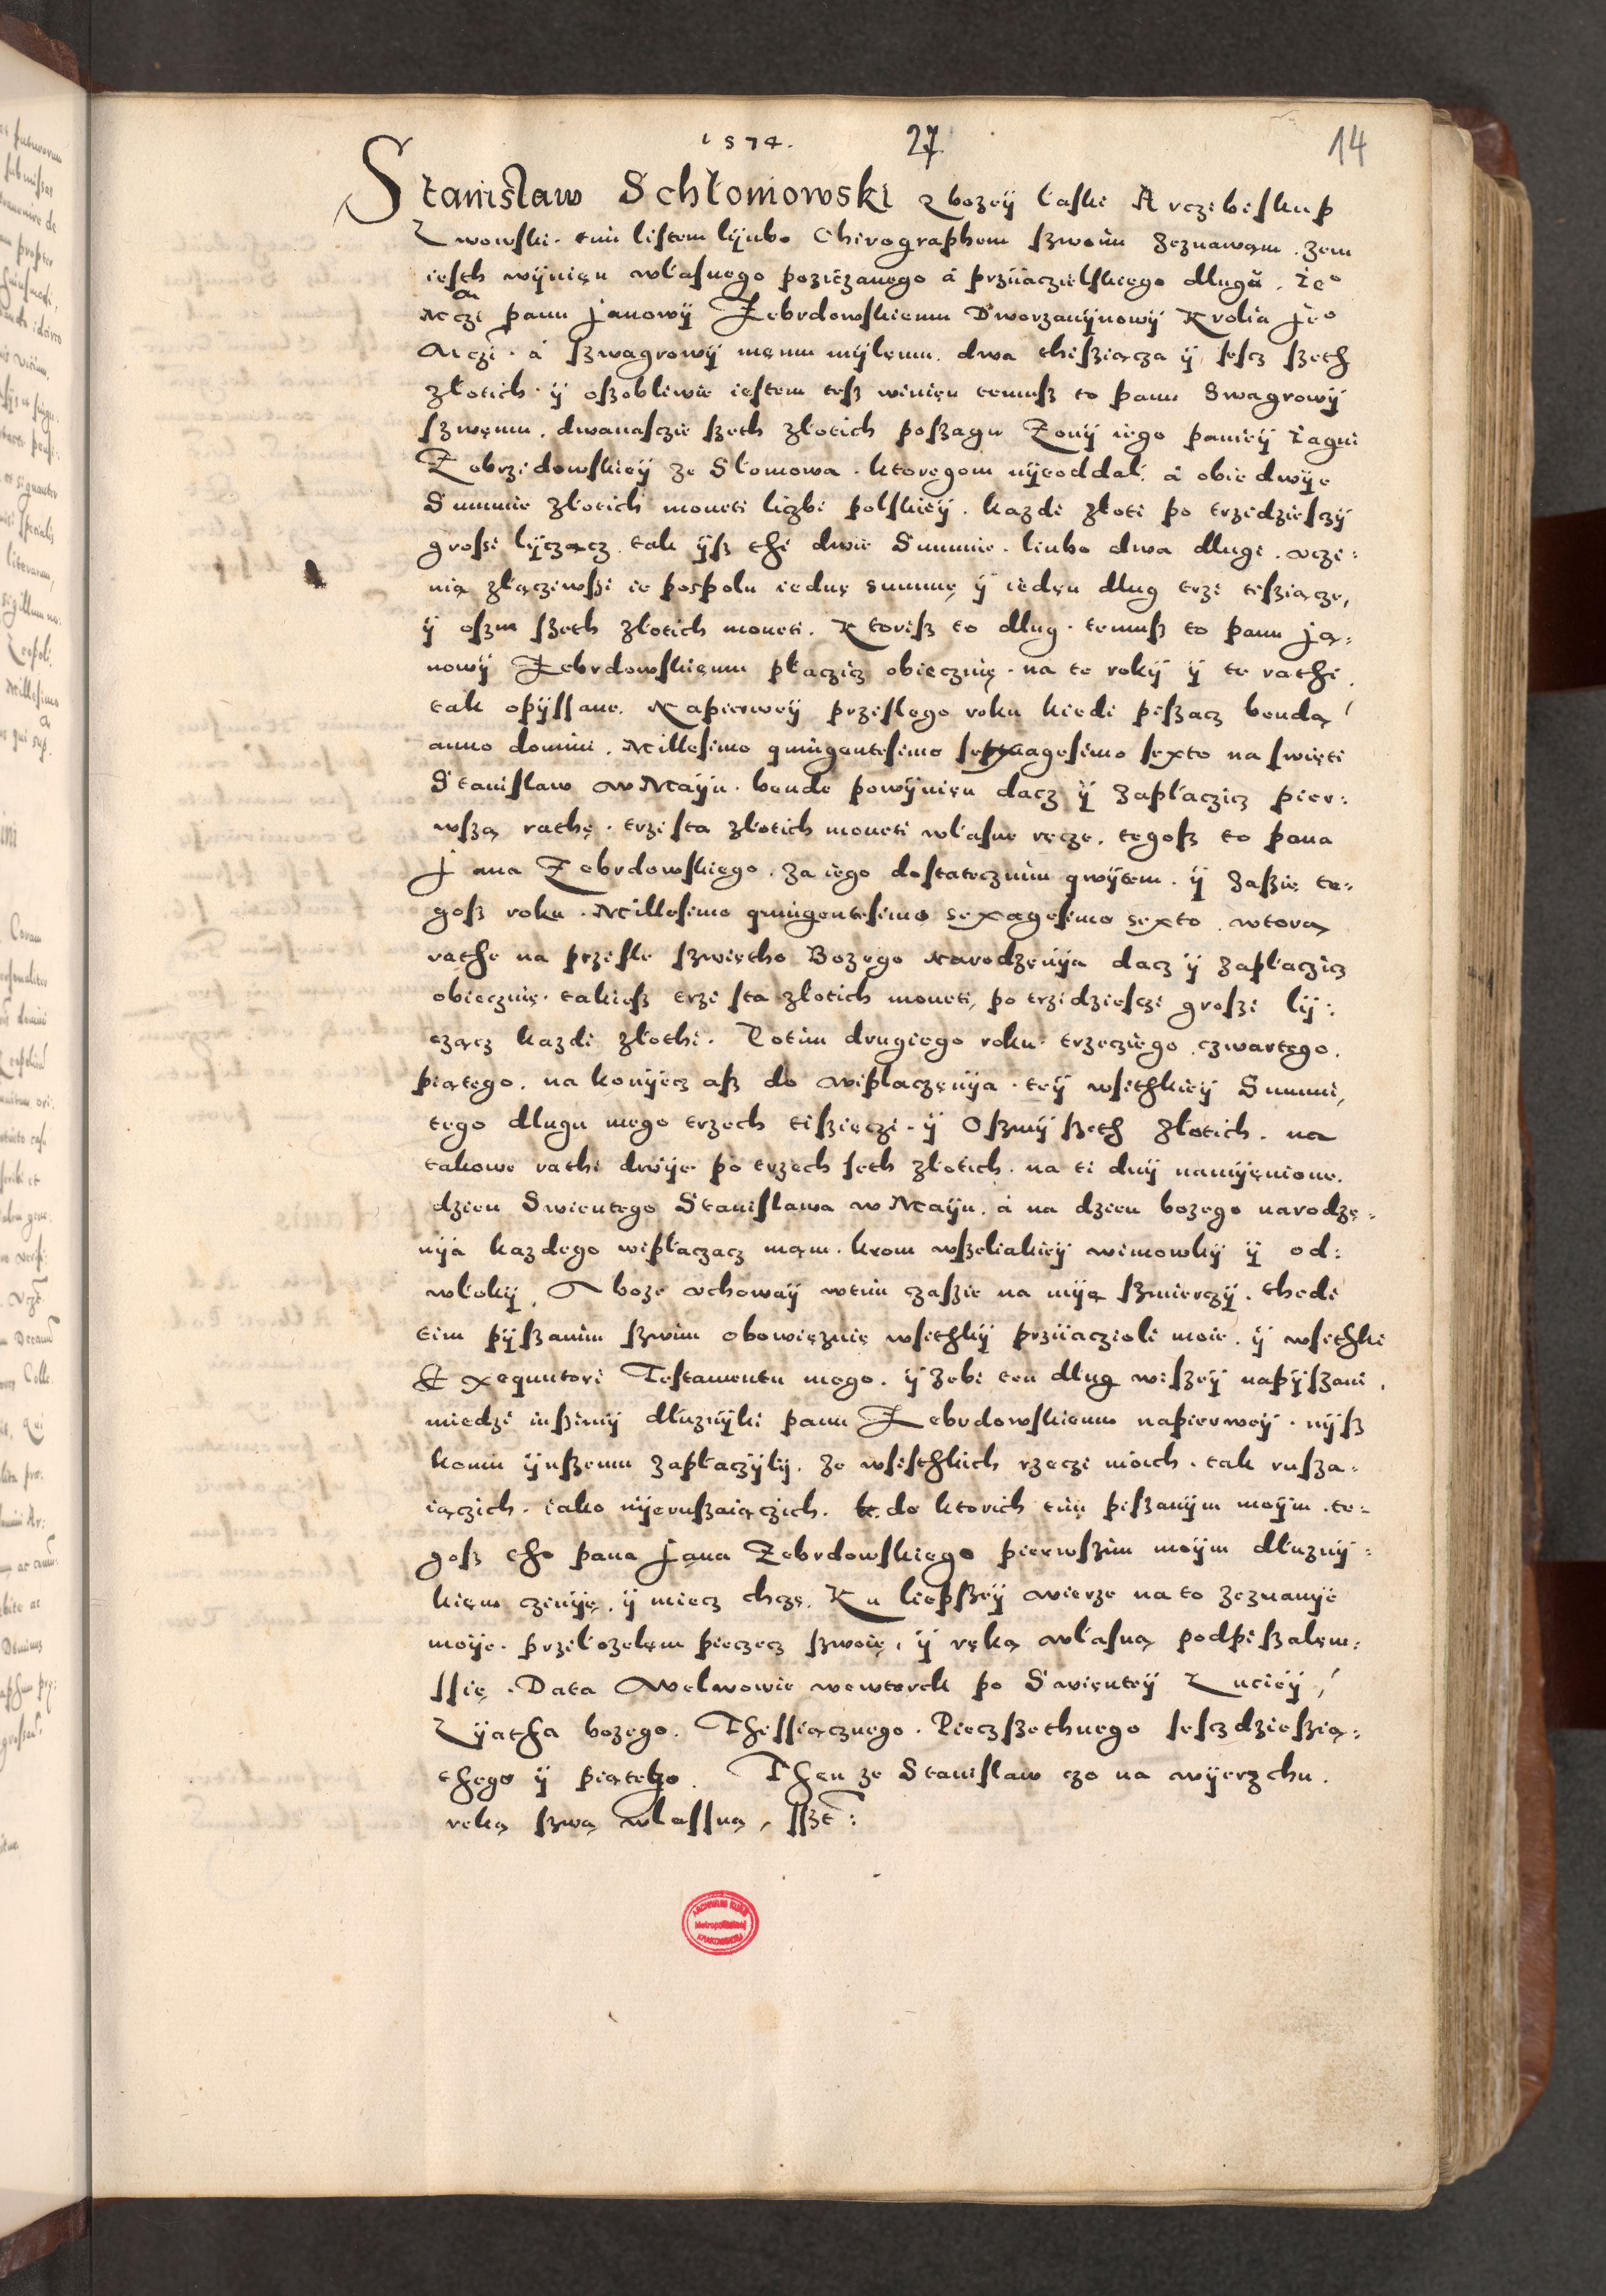 1574.
27
14
Stanislaw Schłomowski z bozeÿ łaski Arczibiskup
Lwowski. tim listem lÿubo Chirographem szwoim zeznawam. zem
iesth wÿnięn własnego poziczanego á prziiaczielskiego długu. Ie°
M czi panu Janowÿ Zebrdowskiemu Dworzanÿnowÿ Krolia Je°
M czi. á szwagrowÿ memu mÿłemu. dwa thisziącza ÿ sescz szeth
złotich. ÿ oszobliwie iestem tesz winięn temusz to panu Swagrowÿ
szwemu. dwanasczie szeth złotich poszagu Zonÿ iego panieÿ Iagni
Zebrzidowskieÿ ze Słomowa. ktoregom nÿeoddał. á obie dwÿe
Summie złotich moneti liczbi polskieÿ. kazdi złoti po trzidziesczÿ
groszi lÿczącz. tak ÿsz thi dwie Summie. liubo dwa dlugi. vczi:
nią złącziwszi ie pospolu iednę summę ÿ iedęn dlug trzi tisziącze,
ÿ oszm szeth złotich moneti. Ktorisz to dlug. temusz to panu Ja:
nowÿ Zebrdowskięmu płaczicz obiecznię. na te rokÿ ÿ te rathi.
tak opÿssane. Napierweÿ prziszlego roku kiedi piszacz bendą
anno domini. Millesimo quingentesimo sexagesimo sexto na swięti
Stanislaw w Maÿu. bende powÿnięn dacz ÿ zapłaczicz pier:
wszą rathę. trzista złotich moneti własne ręcze. tegosz to pana
Jana Zebrdowskiego. za iego dostatecznim qwÿtem. ÿ zaszię te-
gosz roku. Millesimo quingentesimo sexagesimo sexto. wtorą
rathe na przisle szwiętho Bozego Narodzęnÿa dacz ÿ zapłaczicz
obiecznię. takiesz trzi sta złotich moneti, po trzidziesczi groszi lÿ:
czącz kazdi złothi. Potim drugiego roku. trzecziego. czwartego.
piątego. na konÿecz asz do wipłaczęnÿa. teÿ wsithkieÿ Summi,
tego dlugu mego trzech tisziączi. ÿ Oszmÿ szeth złotich. na
takowe rathi dwÿe. po trzech seth złotich. na ti dnÿ namÿęnione.
dzien Swientego Stanislawa w Maÿu. á na dzien bozego narodzę-
nÿa kazdego wipłaczacz mąm. krom wszeliakieÿ wimowkÿ ÿ od:
włokÿ. A boze vchowaÿ wtim czaszie na mÿę szmierczÿ. thedi
tim pÿszanim szwim obowięznię wsithkÿ prziiaczioli moie. ÿ wsithki
Exequutori Testamentu mego. ÿ zebi ten dlug wiszeÿ napÿszani.
miedzi inszimÿ dłuznÿki panu Zebrdowskiemu napierweÿ. nÿsz
komu ÿnszemu zapłaczÿlÿ. ze wsisthkich rzeczi moich. tak rusza-
iączich. iako nÿeruszaiączich. do ktorich tim piszanÿm moÿm. te-
gosz tho pana Jana Zebrdowskiego pierwszim moÿm dłuznÿ-
kięm czinÿę. ÿ miecz chczę. Ku liepszeÿ wierze na to zeznanÿe
moÿe. przÿłozęłęm pieczęcz szwoię, ÿ ręką własną podpiszałęm:
ssię. Data Welwowie wewtorek po Swięnteÿ Lucieÿ,
Lÿatha bozego. Thissiącznego. Pieczszethnego sesczdzieszią:
thego ÿ piątego. Thęn ze Stanislaw czo na wÿerzchu.
ręką szwą włassną, sszt:
ARCHIWUM KURII
Metropolitalnej
KRAKOWSKIEJ